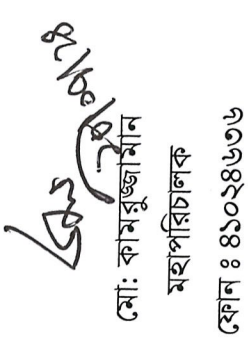 মো: কামরুজ্জামান
মহাপরিচালক
ফোন : ৪১০২৪৬৩৬